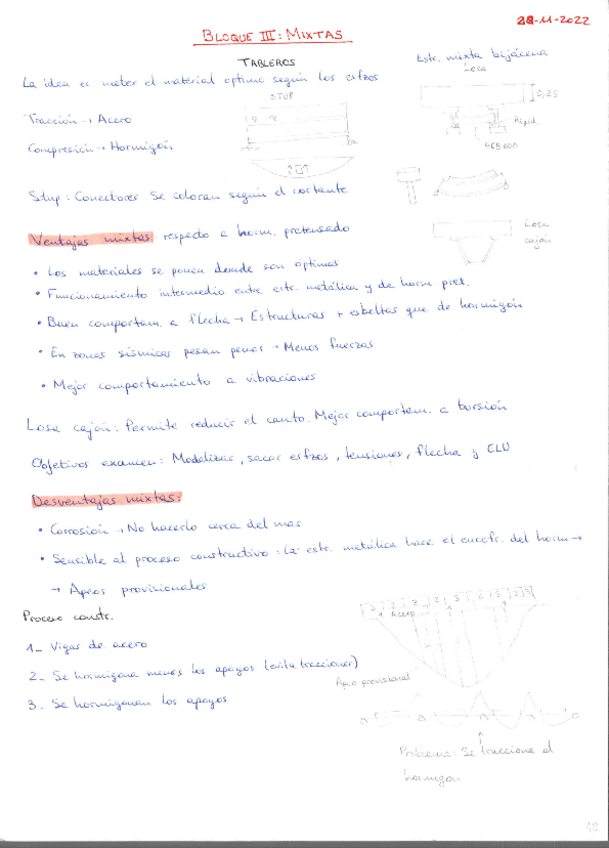 28-11-2022
BLOQUE III: MIXTAS
TABLEROS
Estr. mixta bijácena
Losa
La idea es meter el material óptimo según los esfzos
STUP
0,25
Tracción → Acero
Rigid.
Compresión → Hormigón
Stup: Conectores se colocan según el cortante
Ventajas mixtas respecto a horm. pretensado
Losa
cajón
• Los materiales se ponen donde son óptimos
• Funcionamiento intermedio entre estr. metálica y de horm pret.
• Buen comportam. a flecha → Estructuras + esbeltas que de hormigón
• En zonas sísmicas pesan menos → Menos fuerzas
• Mejor comportamiento a vibraciones
Losa cajón: Permite reducir el canto. Mejor comportam. a torsión
Objetivos examen: Modelizar, sacar esfzos, tensiones, flecha y ELU
Desventajas mixtas:
• Corrosión → No hacerlo cerca del mar
• Sensible al proceso constructivo: La estr. metálica hace el encofr. del horm →
→ Apeos provisionales
Proceso constr.
Acero
1_ Vigas de acero
2_ Se hormigona menos los apoyos (evita traccionar)
Apeo provisional
3_ Se hormigonan los apoyos
Problema: Se tracciona el
hormigón
42